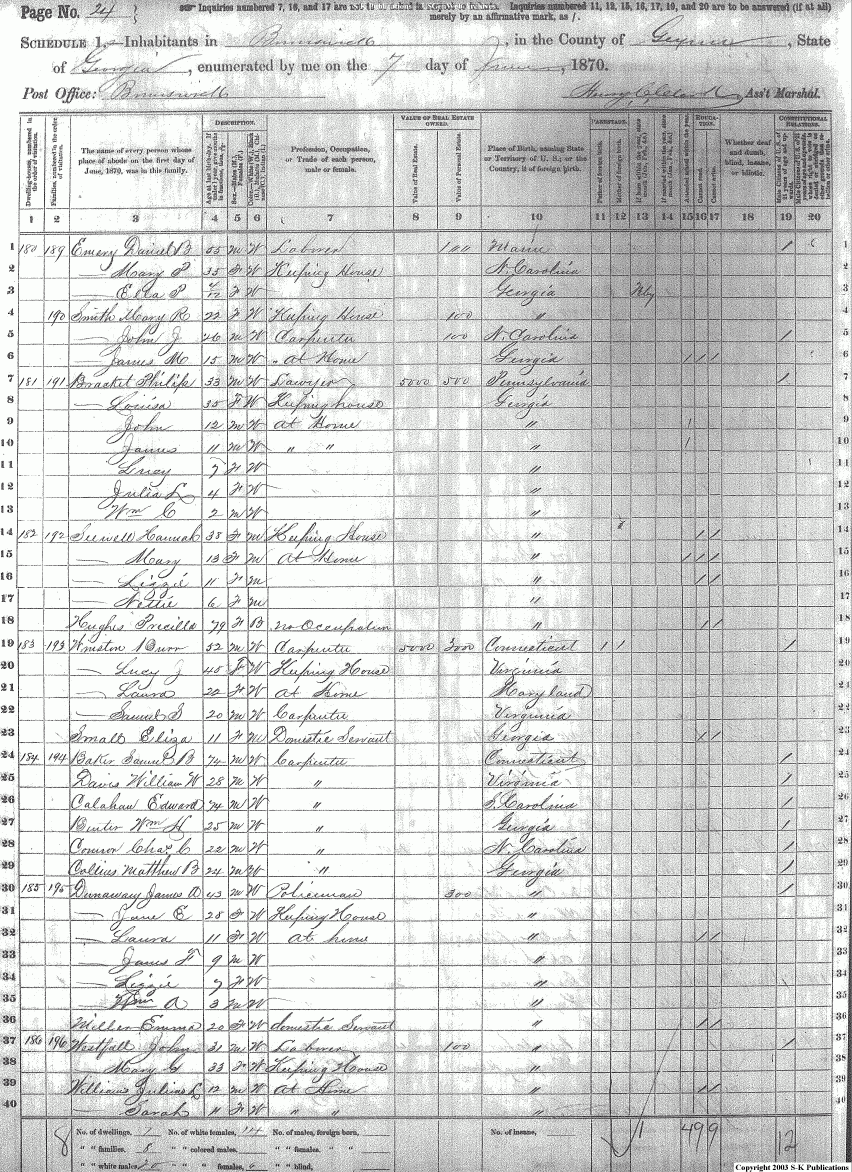 Page No. 24
Inquiries numbered 7, 16, and 17 are not to be asked in respect to infants. Inquiries numbered 11, 12, 15, 16, 17, 19, and 20 are to be answered (if at all)
merely by an affirmative mark, as /.
SCHEDULE 1.—Inhabitants in Brunswick, in the County of Glynn, State
of Georgia, enumerated by me on the 7 day of June, 1870.
Post Office: Brunswick Ass't Marshal.
DESCRIPTION. VALUE OF REAL ESTATE OWNED. PARENTAGE. EDUCATION. CONSTITUTIONAL RELATIONS.
Dwelling-houses, numbered in the order of visitation.
Families, numbered in the order of visitation.
The name of every person whose place of abode on the first day of June, 1870, was in this family.
Profession, Occupation, or Trade of each person, male or female.
Value of Real Estate.
Value of Personal Estate.
Place of Birth, naming State or Territory of U. S.; or the Country, if of foreign birth.
Father of foreign birth.
Mother of foreign birth.
Whether deaf and dumb, blind, insane, or idiotic.
1 2 3 4 5 6 7 8 9 10 11 12 13 14 15 16 17 18 19 20
1 180 189 Emery Daniel B 55 M W Laborer 100 Maine / 1
2 — Mary P 35 F W Keeping House N. Carolina 2
3 — Ella P F W Georgia 3
4 190 Smith Mary R 22 F W Keeping House 100 " 4
5 — John J 26 M W Carpenter 100 N. Carolina / 5
6 — James M 15 M W At Home Georgia / / / 6
7 181 191 Bracket Philip 33 M W Lawyer 5000 500 Pennsylvania / 7
8 — Louisa 35 F W Keeping house Georgia 8
9 — John 12 M W At Home " / 9
10 — James 11 M W " " " / 10
11 — Lucy 7 F W " 11
12 — Julia L 4 F W " 12
13 — Wm C 2 M W " 13
14 182 192 Seewell Hannah 38 F M Keeping House " / / 14
15 — Mary 13 F M At Home " / / / 15
16 — Lizzie 11 F M " / / 16
17 — Nettie 6 F M " 17
18 Hughs Precilla 79 F B No Occupation " / / 18
19 183 193 Winston Burr 52 M W Carpenter 5000 3000 Connecticut / / / 19
20 — Lucy J 45 F W Keeping House Virginia 20
21 — Laura 22 F W At Home Maryland 21
22 — Samuel S 20 M W Carpenter Virginia 22
23 Small Eliza 11 F M Domestic Servant Georgia / / 23
24 184 194 Baker Samuel B 74 M W Carpenter Connecticut / 24
25 Davis William W 28 M W " Virginia / 25
26 Calahan Edward 74 M W " S. Carolina / 26
27 Wm H 25 M W " Georgia / 27
28 Connor Chas C 22 M W " N. Carolina / 28
29 Collins Matthew B 24 M W " Georgia / 29
30 185 195 Dunaway James A 43 M W Policeman 300 " / 30
31 — Jane E 28 F W Keeping House " 31
32 — Laura 11 F W At home " / / 32
33 — James F 9 M W " 33
34 — Lizzie 7 F W " 34
35 — Wm A 3 M W " 35
36 Miller Emma 20 F W domestic Servant " / / 36
37 186 196 Westfall John 31 M W Laborer 100 " / 37
38 — Mary G 33 F W Keeping House " 38
39 William Julius L 12 M W At Home " / / 39
40 — Sarah 11 F W " " " 40
8 No. of dwellings, 7 No. of white females, 14 No. of males, foreign born, No. of insane, 1 4 9 9 12
" " families, 8 " " colored males, " " females, " "
" " white males, 20 " " females, 6 " " blind,
Copyright 2003 S-K Publications